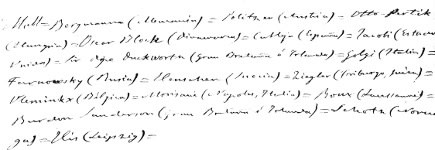 Hall = Bergmann (Alemania) = Politzer (Austria) = Otto Pertik
(Hungria) = Oscar Block (Dinamarca) = Calleja (España) = Jacobi (Estados
Unidos) = Sir Dyce Duckworth (Gran Bretaña é Irlanda) = Golgi (Italia) =
Tarnowsky (Rusia) = Henschen (Suecia) = Ziegler (Friburgo, Suiza) =
Vleminkx (Bélgica) = Morisani (Napoles, Italia) = Roux (Lausanne) =
Burdon Sanderson (Gran Bretaña é Irlanda) = Schotz (Norue-
ga) = His (Leipzig) =